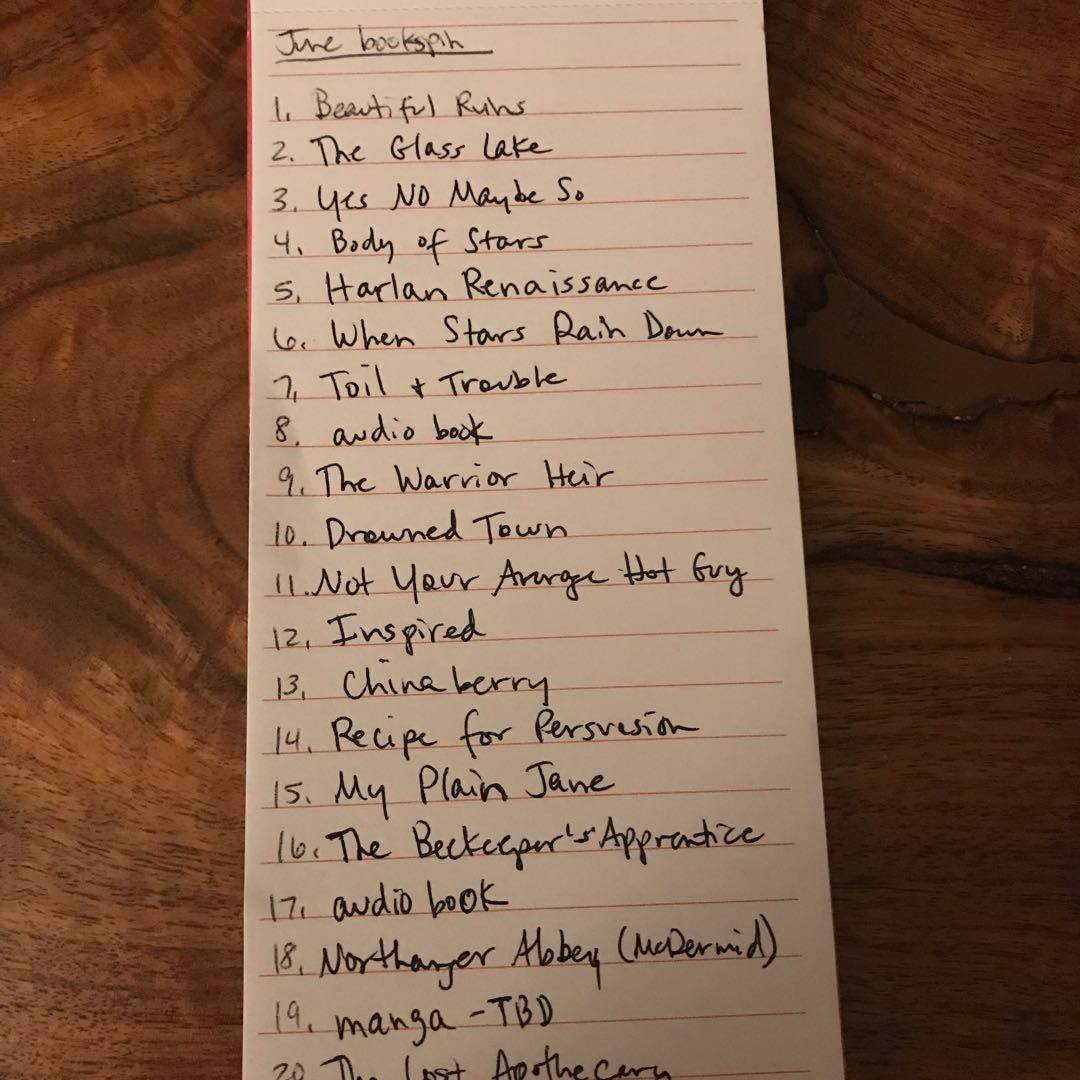 June bookspin
1. Beautiful Ruins
2. The Glass Lake
3. Yes NO Maybe So
4. Body of Stars
5. Harlan Renaissance
6. When Stars Rain Down
7. Toil + Trouble
8. audio book
9. The Warrior Heir
10. Drowned Town
11. Not Your Average Hot Guy
12. Inspired
13. Chinaberry
14. Recipe for Persuasion
15. My Plain Jane
16. The Beekeeper's Apprentice
17. audio book
18. Northanger Abbey (McDermid)
19. manga - TBD
20 The Lost Apothecary